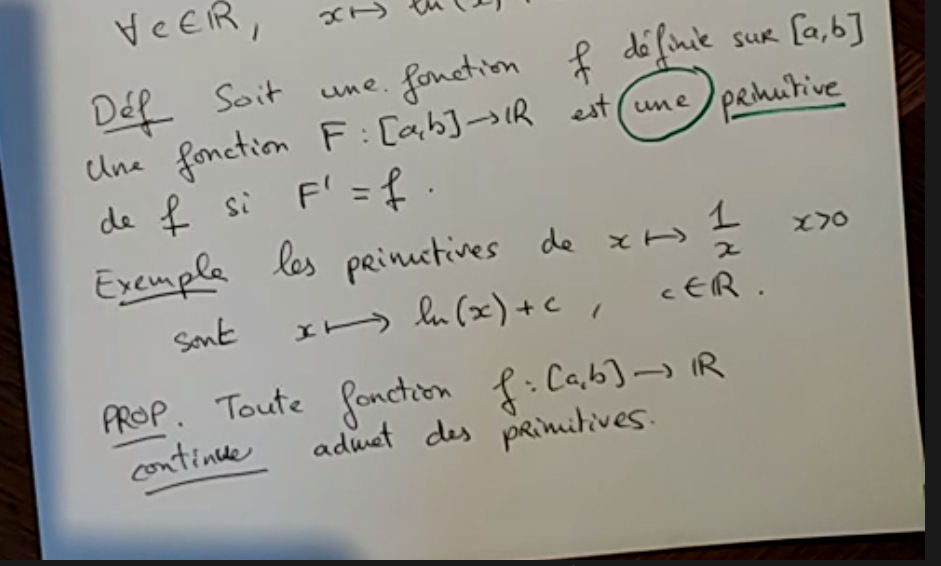 ∀c∈ℝ, x↦ ln(x)
Déf Soit une fonction f définie sur [a,b]
Une fonction F : [a,b]→ℝ est une primitive
de f si F' = f.
Exemple les primitives de x↦ 1/x x>0
sont x↦ ln(x)+c, c∈ℝ.
PROP. Toute fonction f : [a,b]→ℝ
continue admet des primitives.